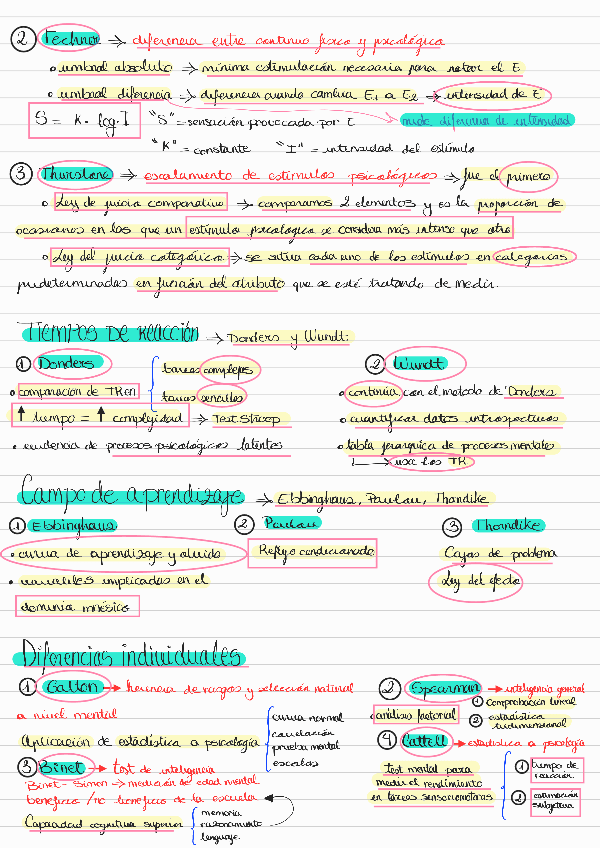 ② Techner → diferencia entre continuo físico y psicológica
• umbral absoluto → mínima estimulación necesaria para notar el E
• umbral diferencia → diferencia cuando cambia E1 a E2 → intensidad de E
S = K · log I "S" = sensación provocada por E mide diferencia de intensidad
"K" = constante "I" = intensidad del estímulo
③ Thurstone → escalamiento de estímulos psicológicos → fue el primero
• Ley de juicio comparativo → comparamos 2 elementos y es la proporción de
ocasiones en las que un estímulo psicológico se considera más intenso que otro
• Ley del juicio categórico → se sitúa cada uno de los estímulos en categorías
predeterminadas en función del atributo que se esté tratando de medir.
Tiempos de Reacción → Donders y Wundt:
① Donders ② Wundt
tareas complejas
• comparación de TR en
tareas sencillas
• continúa con el metodo de Donders
↑ tiempo = ↑ complejidad → Test Stroop
• cuantificar datos introspectivos
• evidencia de procesos psicológicos latentes
• tabla jerarquica de procesos mentales
→ usa los TR
Campo de aprendizaje → Ebbinghaus, Paulau, Thondike
① Ebbinghaus ② Paulau ③ Thondike
• curva de aprendizaje y olvido Reflejo condicionado Cajas de problema
• variables implicadas en el Ley del efecto
dominio mnésico
Diferencias individuales
① Galton → herencia de rasgos y selección natural
a nivel mental
② Spearman → inteligencia general
análisis factorial ① comprobación
② estadística
Aplicación de estadística a psicología
curva normal
correlación
prueba mental
escalas
④ Cattell → estadística a psicología
③ Binet → test de inteligencia
Binet - Simon → medición de edad mental
beneficia / no beneficia de la escuela
Capacidad cognitiva superior
memoria
razonamiento
lenguaje.
test mental para
medir el rendimiento
en tareas sensoriomotoras
① tiempo de
reacción
② estimación
subjetiva